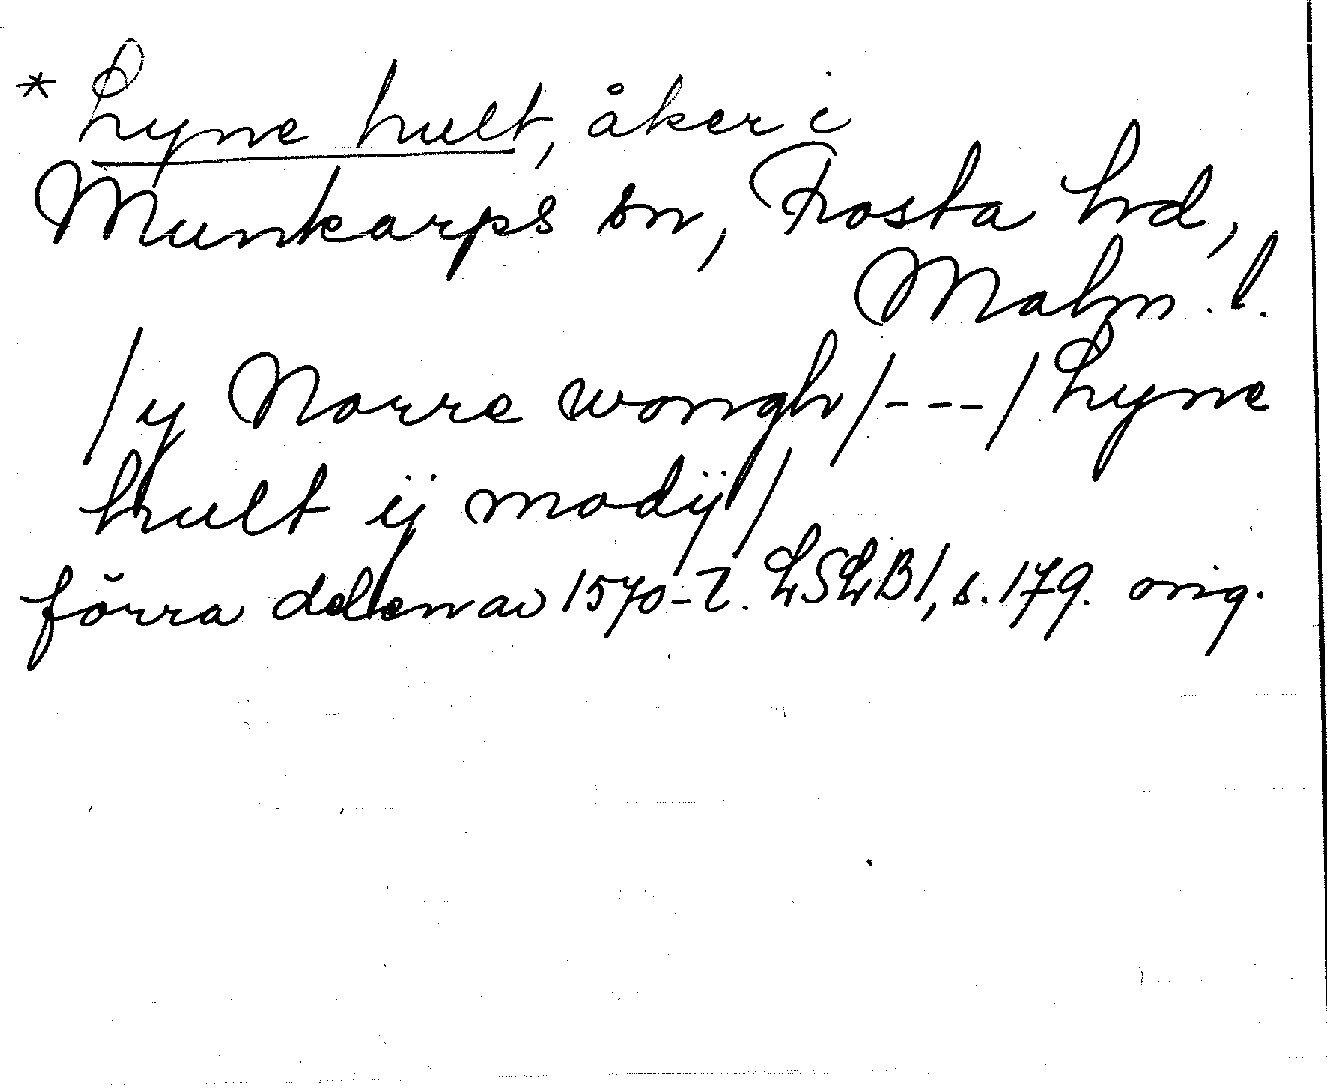 * Lyne hult, åker i
Munkarps sn, Frosta hd,
Malm. l.
/y Norre wongh/---/Lyne
hult ij modÿ/
förra delen av 1570-t. LSLB1, s. 179. orig.